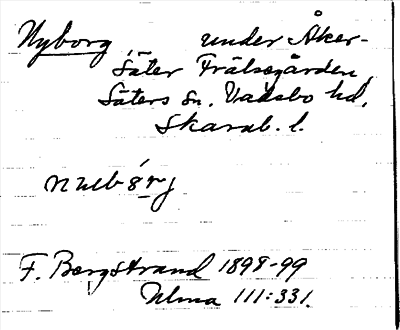 Nyborg under Åker-
Säter Frälsegården,
Säters sn. Vadsbo hd,
Skarab. l.
F. Bergstrand 1898-99
Ulma 111:331.